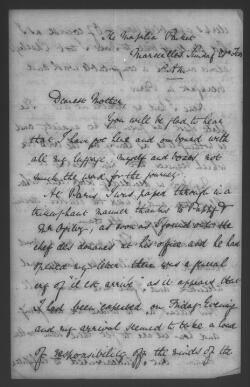 The Naples Packet
Marseilles Sunday
Dearest Mother,
You will be glad to hear
that I have got leave and on board with
all my luggage, myself and boxes not
much the worse for the journey.
At Paris, I was passed through in a
triumphant manner thanks to
Mr Ogilvy, as soon as I found out the
chef des douanes at his office and he had
opened my letter there was a general
cry of "il est arrivé" as it appeared that
I had been expected on Friday Evening
and my arrival seemed to take a load
of responsibility off the minds of the